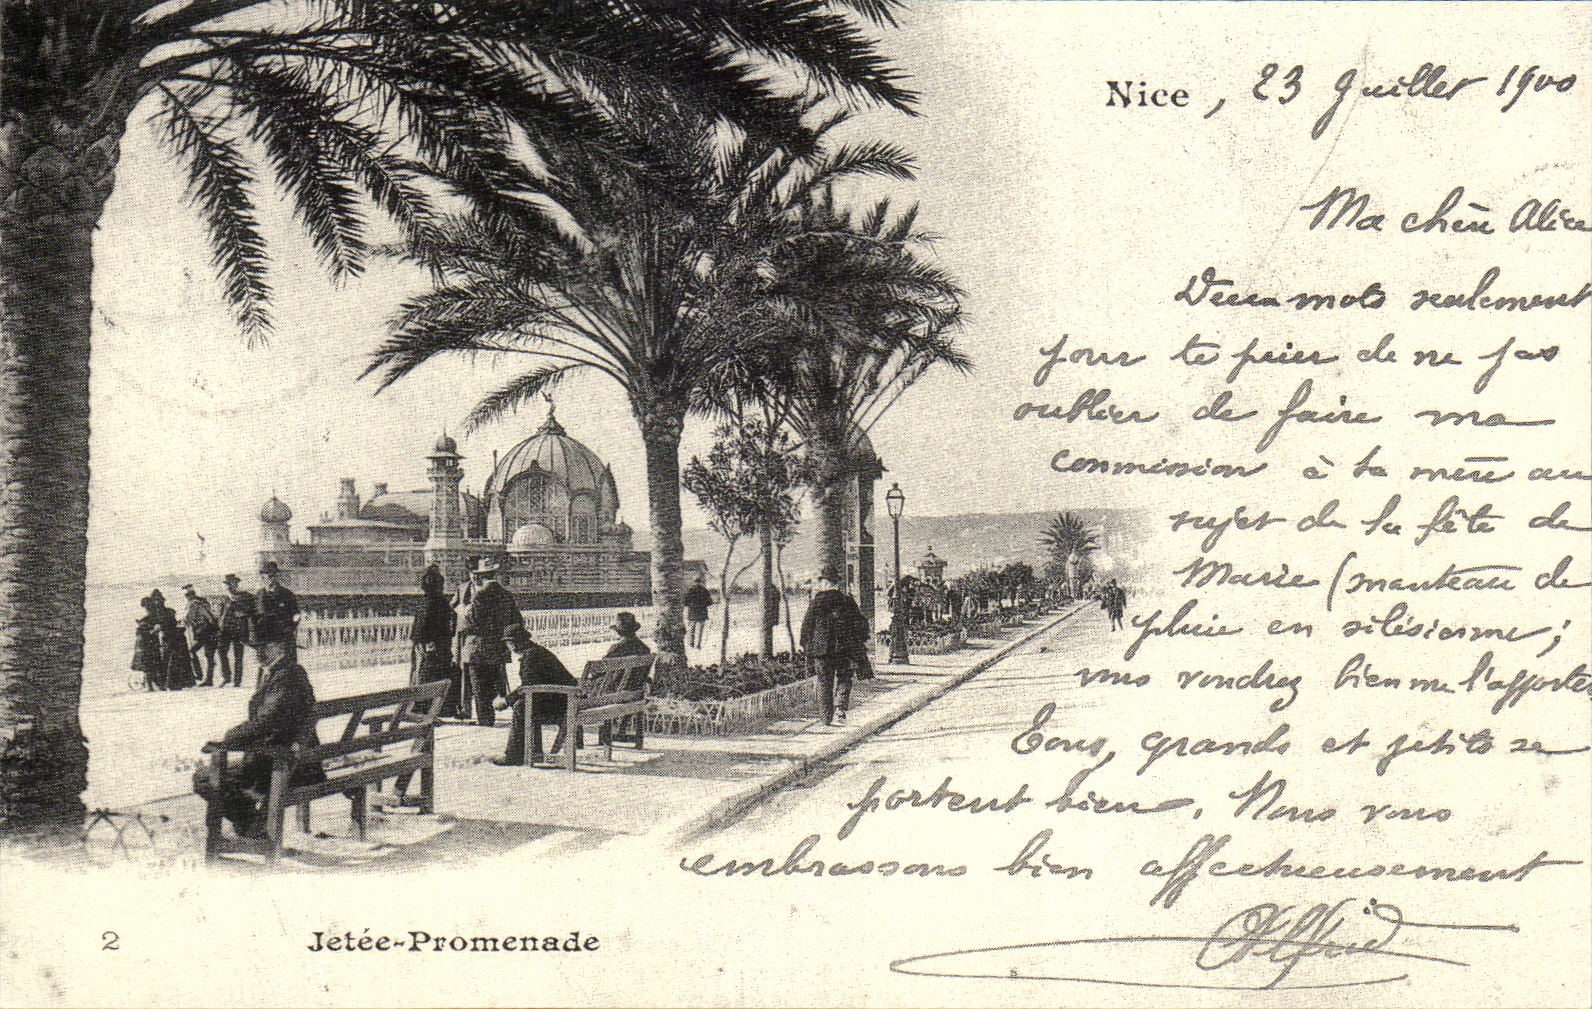 Nice, 23 Juillet 1900
Ma chère Alice
Deux mots seulement
pour te prier de ne pas
oublier de faire ma
commission à ta mère au
sujet de la fête de
Marie (manteau de
pluie en silésienne;
vous voudrez bien me l'apporter
Tous, grands et petits se
portent bien. Nous vous
embrassons bien affectueusement
Alfred
2 Jetée-Promenade